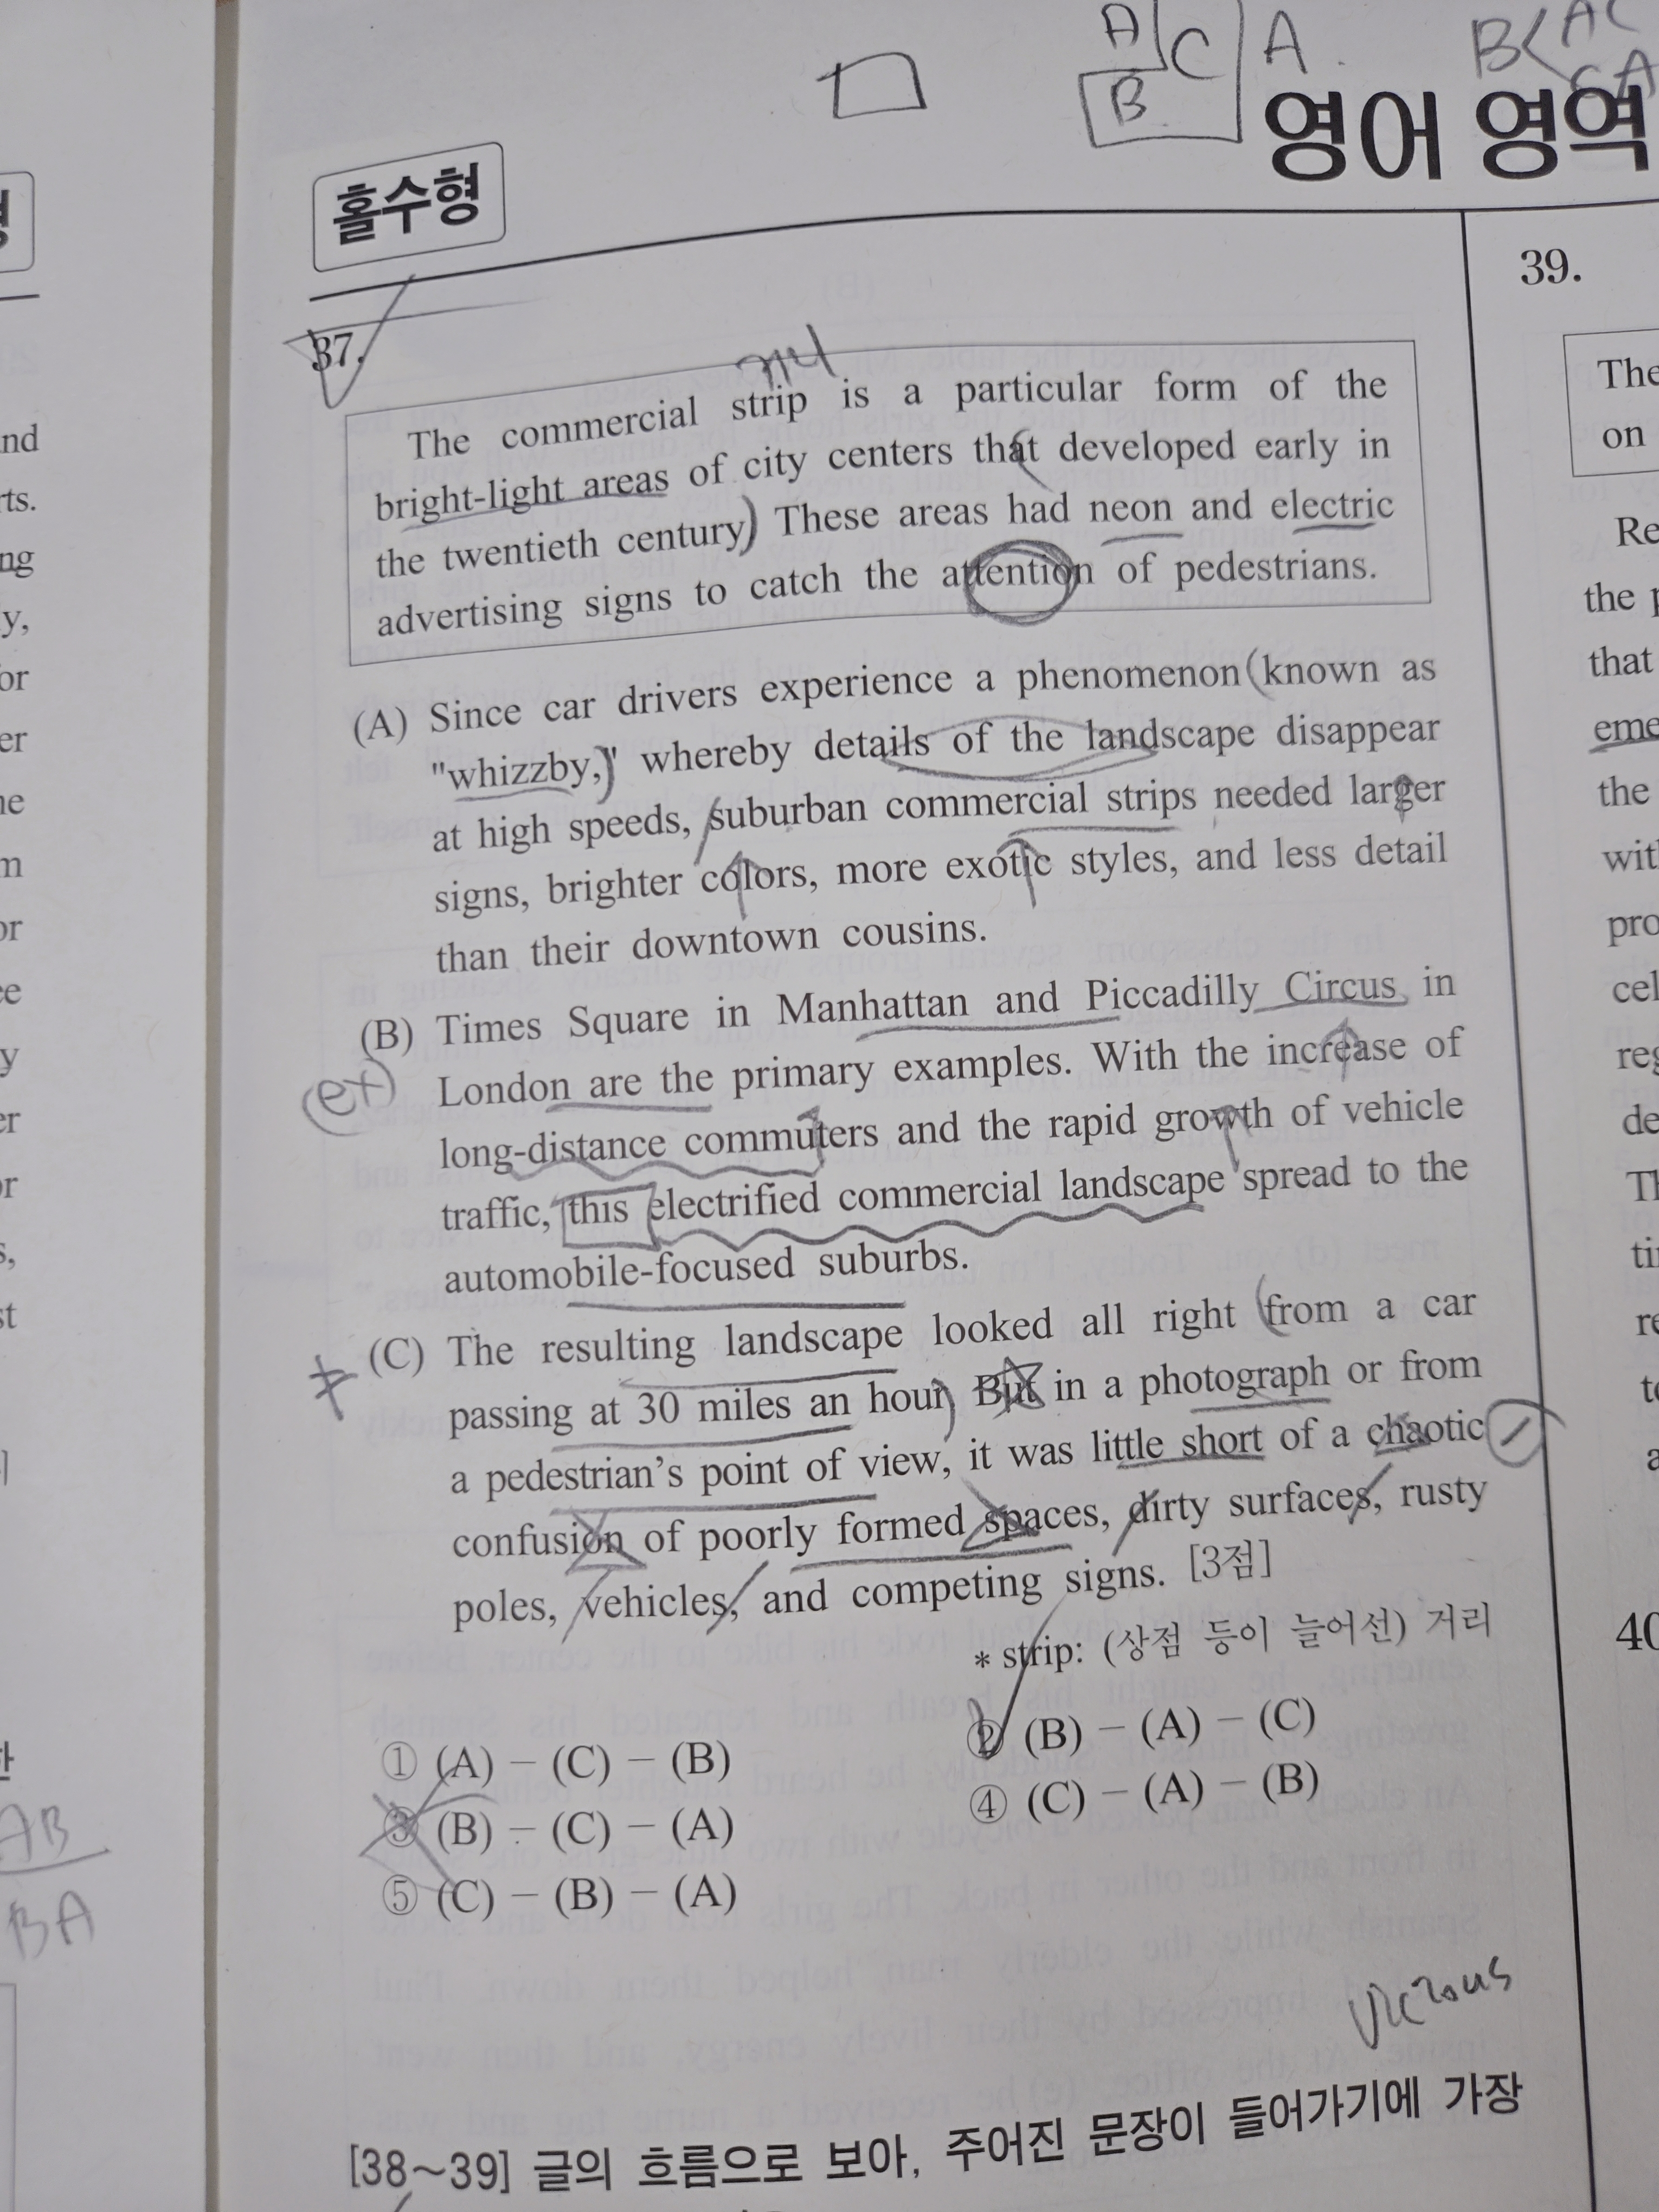 A C A B< AC
B CA
영어 영역
홀수형
39.
37.
The
The commercial strip is a particular form of the
on
bright-light areas of city centers that developed early in
the twentieth century. These areas had neon and electric
advertising signs to catch the attention of pedestrians.
(A) Since car drivers experience a phenomenon known as
"whizzby," whereby details of the landscape disappear
at high speeds, suburban commercial strips needed larger
signs, brighter colors, more exotic styles, and less detail
than their downtown cousins.
(B) Times Square in Manhattan and Piccadilly Circus in
ex)
London are the primary examples. With the increase of
long-distance commuters and the rapid growth of vehicle
traffic, this electrified commercial landscape spread to the
automobile-focused suburbs.
(C) The resulting landscape looked all right from a car
passing at 30 miles an hour. But in a photograph or from
a pedestrian's point of view, it was little short of a chaotic
confusion of poorly formed spaces, dirty surfaces, rusty
poles, vehicles, and competing signs. [3점]
* strip: (상점 등이 늘어선) 거리
① (A) - (C) - (B)
② (B) - (A) - (C)
③ (B) - (C) - (A)
④ (C) - (A) - (B)
⑤ (C) - (B) - (A)
AB
BA
vicious
[38~39] 글의 흐름으로 보아, 주어진 문장이 들어가기에 가장
Re
the
that
the
40